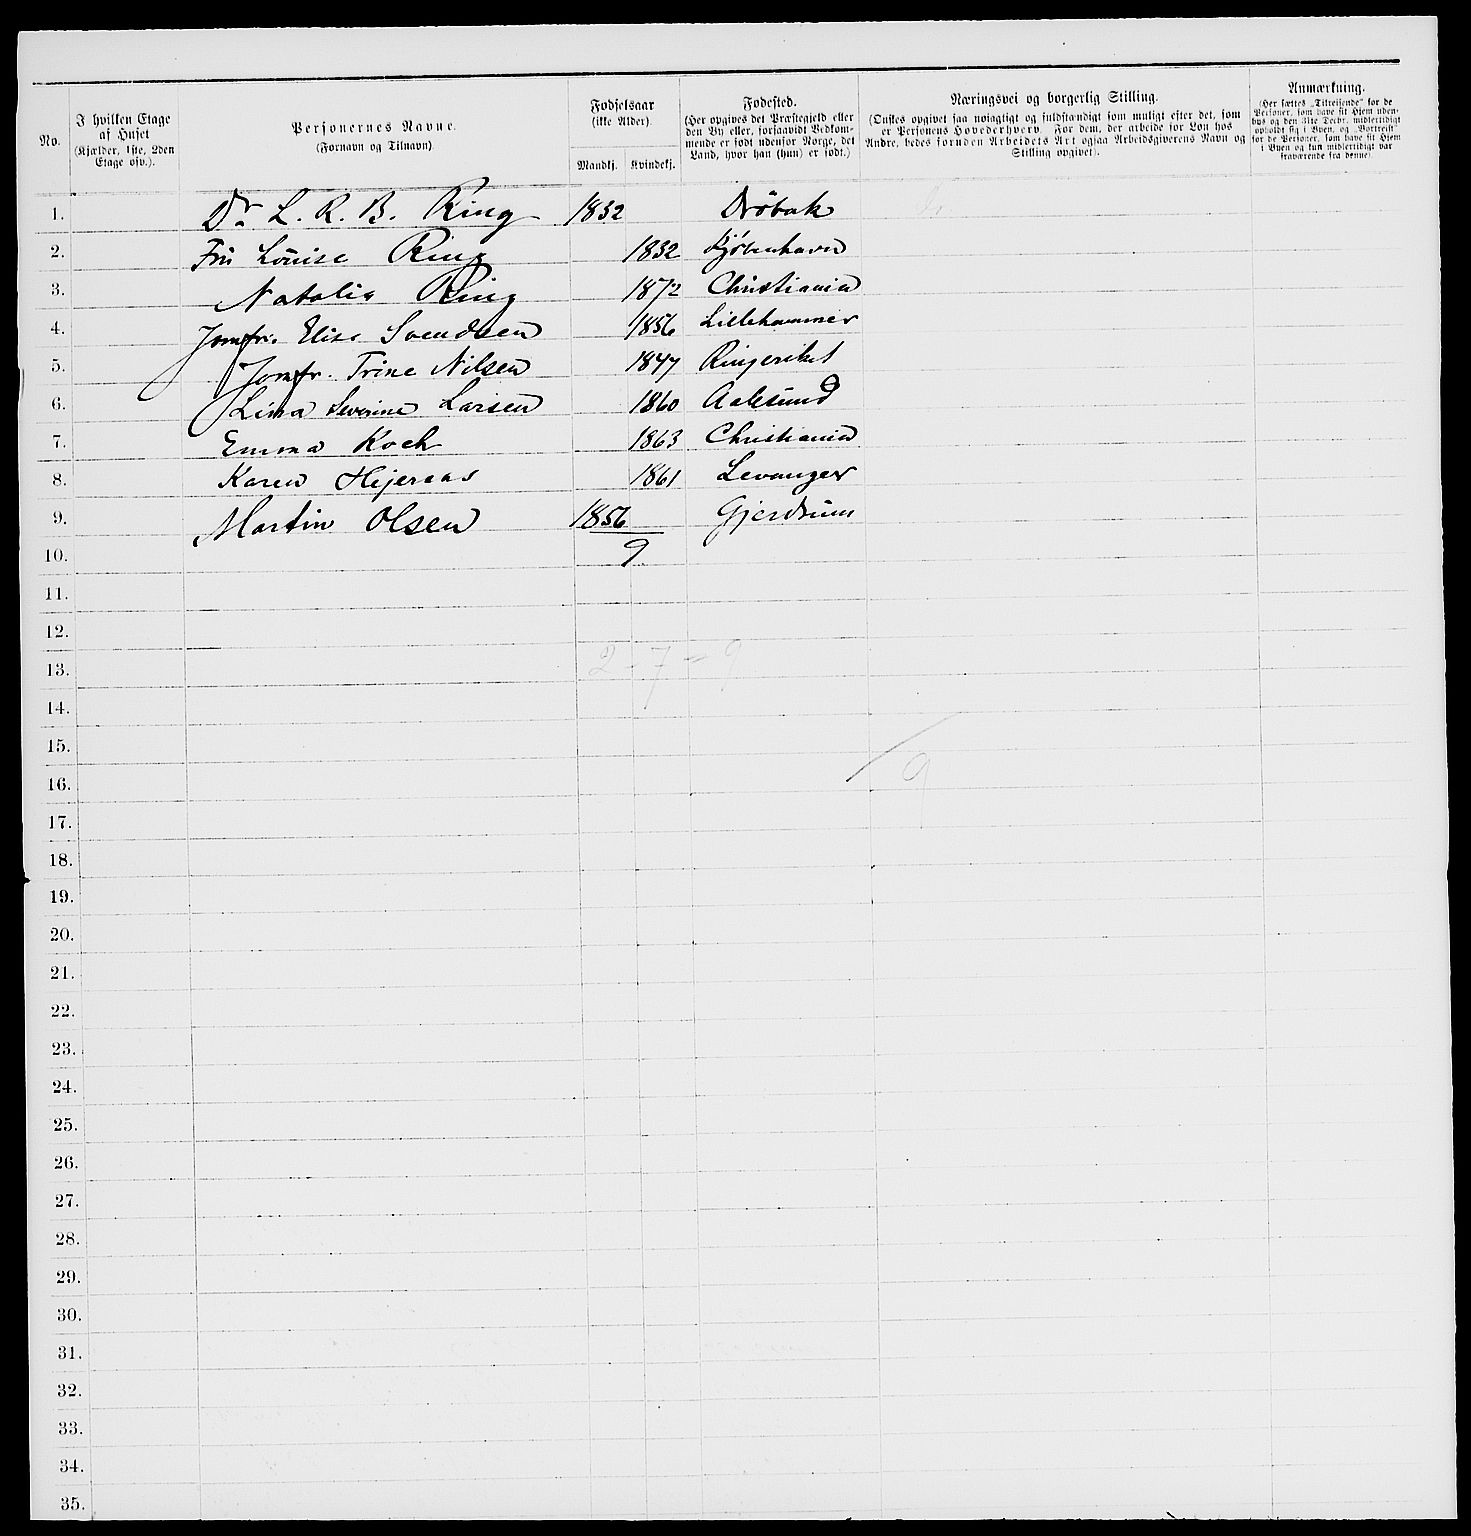 No.
I hvilken Etage af Huset (Kjælder, 1ste, 2den Etage osv.).
Personernes Navne. (Fornavn og Tilnavn)
Fødselsaar (ikke Alder).
Mandkj. Kvindekj.
Fødested. (Her opgives det Præstegjeld eller den By eller, forsaavidt Vedkommende er født udenfor Norge, det Land, hvor han (hun) er født.)
Næringsvei og borgerlig Stilling. (Ønskes opgivet saa nøiagtigt og fuldstændigt som muligt efter det, som er Personens Hovederhverv. For dem, der arbeide for Løn hos Andre, bedes foruden Arbeidets Art ogsaa Arbeidsgiverens Navn og Stilling opgivet).
Anmærkning. (Her sættes „Tilreisende“ for de Personer, som have sit Hjem udenbys og den 31te Decbr. midlertidigt opholdt sig i Byen, og „Bortreist“ for de Personer, som have sit Hjem i Byen og kun midlertidigt var fraværende fra denne).
1. Dr. L. R. B. Ring 1832 Drøbak Dr
2. Fru Louise Ring 1832 Kjøbenhavn
3. Natalia Ring 1872 Christiania
4. Jomfr. Elise Svendsen 1856 Lillehammer
5. Jomfr. Trine Nilsen 1847 Ringeriket
6. Lina Severine Larsen 1860 Aalesund
7. Emma Koch 1863 Christiania
8. Karen Hejeraas 1861 Levanger
9. Martin Olsen 1856 Gjerdrum
10. 9
11.
12.
13. 2 - 7 = 9
14.
15.
16. 9
17.
18.
19.
20.
21.
22.
23.
24.
25.
26.
27.
28.
29.
30.
31.
32.
33.
34.
35.